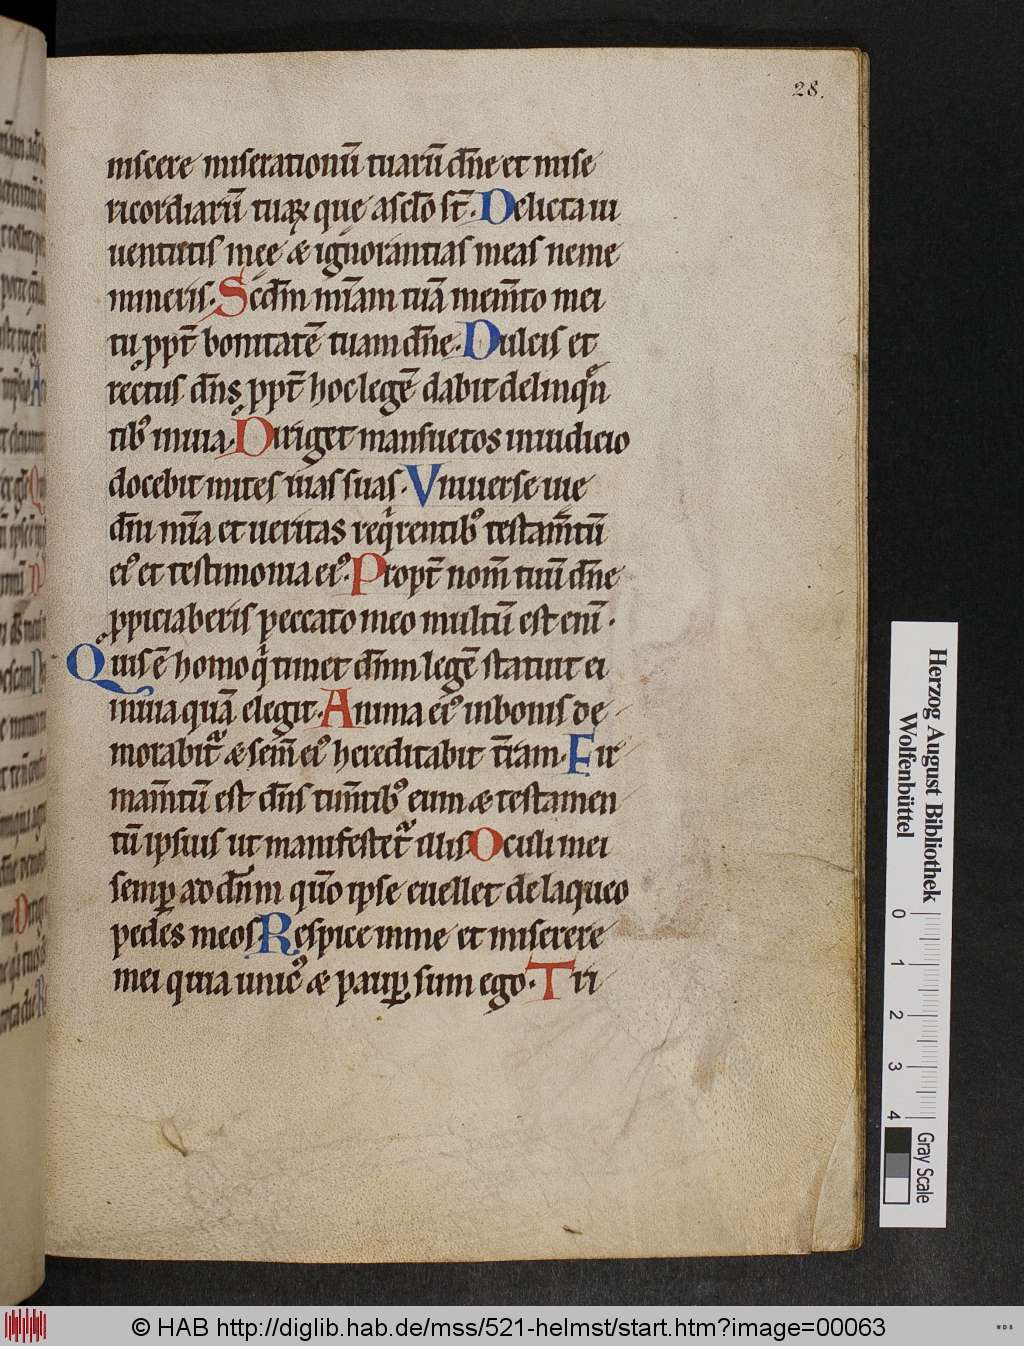 28.
niscere miserationū tuarū dn̄e et mise
ricordiarū tuaꝝ que ascl̄o st̄. Delicta iu
uentutis mee & ignorantias meas neme
mineris. Scdm̄ mīam tuā mem̄to mei
tu ppt̄ bonitatē tuam dn̄e. Dulcis et
rectus dn̄s ppt̄ hoc legē dabit delinqn̄
tibꝰ in uia. Diriget mansuetos in iudicio
docebit mites uias suas. Vniuerse uie
dn̄i mīa et ueritas reqrentibꝰ testam̄tū
eiꝰ et testimonia eiꝰ. Propt̄ nom̄ tuū dn̄e
ꝓpiciaberis peccato meo multū est enī.
Quis ē homo q̇ timet dn̄m legē statuit ei
in uia quā elegit. Anima eiꝰ in bonis de
morabit̄ & sem̄ eiꝰ hereditabit tr̄am. Fir
mam̄tū est dn̄s tim̄tibꝰ eum & testamen
tū ipsius ut manifestet̄ illis Oculi mei
semꝑ ad dn̄m qm̄o ipse euellet de laqueo
pedes meos Respice in me et miserere
mei quia unicꝰ & pauꝑ sum ego. Tri
Herzog August Bibliothek
Wolfenbüttel
0 1 2 3 4
Gray Scale
© HAB http://diglib.hab.de/mss/521-helmst/start.htm?image=00063